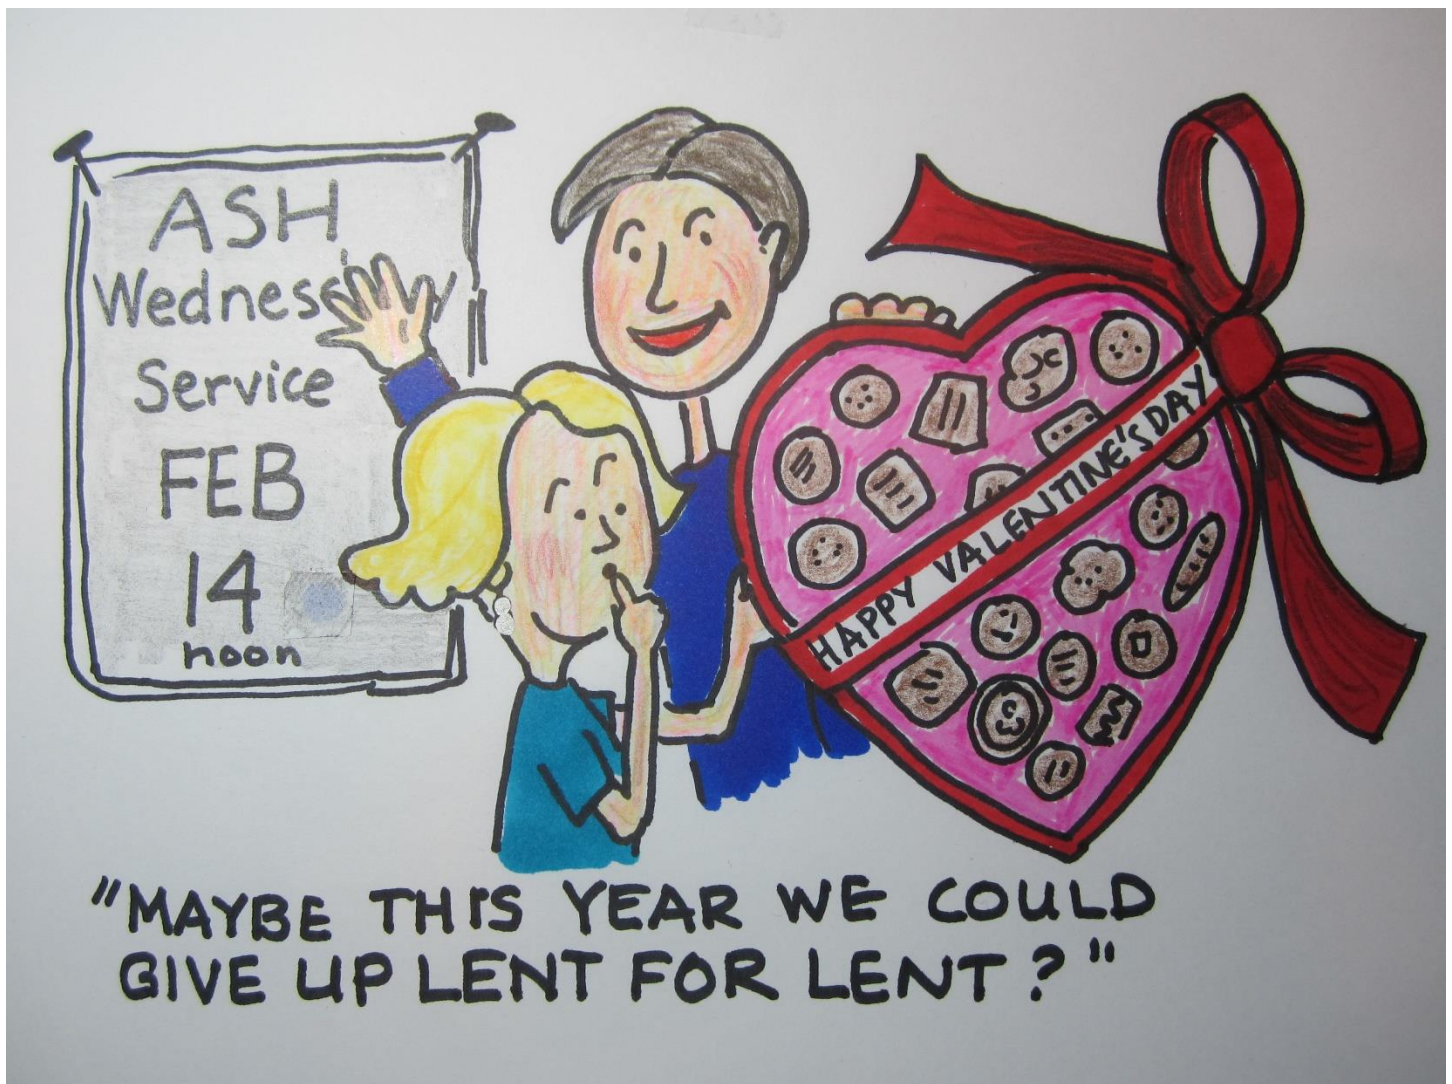 ASH
Wednesday
Service
FEB
14
noon
HAPPY VALENTINE'S DAY
"MAYBE THIS YEAR WE COULD
GIVE UP LENT FOR LENT?"